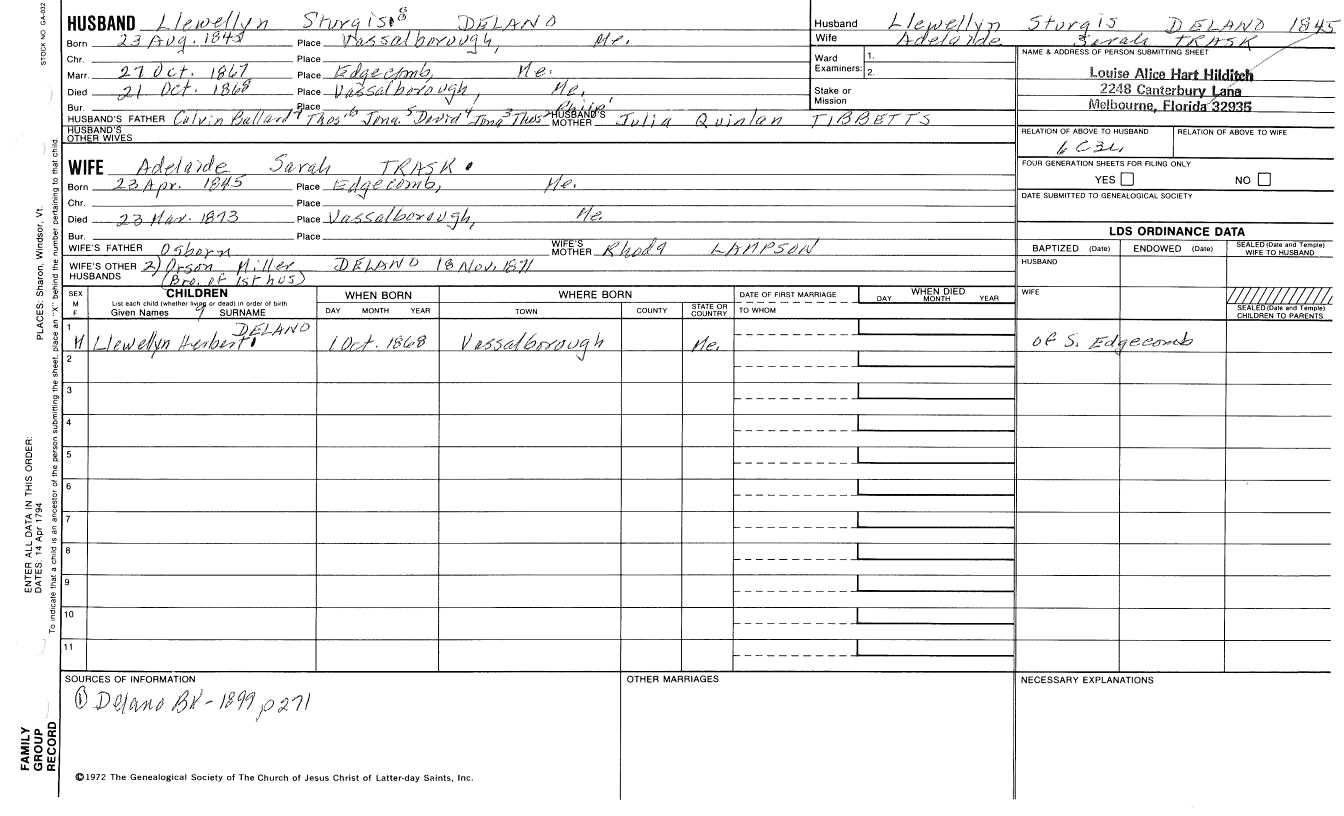 STOCK NO GA-032
HUSBAND Llewellyn Sturgis 8 DELANO
Born 23 Aug. 1845 Place Vassalborough, Me.
Chr. Place
Marr. 27 Oct. 1867 Place Edgecomb, Me.
Died 21 Oct. 1868 Place Vassalborough, Me.
Bur. Place
HUSBAND'S FATHER Calvin Ballard 7 Thos 6 Jona. 5 David 4 Jona 3 Thos 2 Philip 1 HUSBAND'S MOTHER Julia Quinlan TIBBETTS
HUSBAND'S OTHER WIVES
Husband Llewellyn Sturgis DELANO 1845
Wife Adelaide Sarah TRASK
Ward Examiners: 1.
2.
Stake or Mission
NAME & ADDRESS OF PERSON SUBMITTING SHEET
Louise Alice Hart Hilditch
2248 Canterbury Lane
Melbourne, Florida 32935
RELATION OF ABOVE TO HUSBAND RELATION OF ABOVE TO WIFE
6C3u
FOUR GENERATION SHEETS FOR FILING ONLY
YES NO
DATE SUBMITTED TO GENEALOGICAL SOCIETY
WIFE Adelaide Sarah TRASK
Born 23 Apr. 1845 Place Edgecomb, Me.
Chr. Place
Died 23 Mar. 1873 Place Vassalborough, Me.
Bur. Place
WIFE'S FATHER Osborn WIFE'S MOTHER Rhoda LAMPSON
WIFE'S OTHER HUSBANDS 2) Orson Miller DELANO 18 Nov. 1871
(Bro. of 1st hus)
LDS ORDINANCE DATA
BAPTIZED (Date) ENDOWED (Date) SEALED (Date and Temple) WIFE TO HUSBAND
HUSBAND
WIFE
SEALED (Date and Temple) CHILDREN TO PARENTS
SEX M F
CHILDREN
List each child (whether living or dead) in order of birth
Given Names 9 SURNAME
WHEN BORN
DAY MONTH YEAR
WHERE BORN
TOWN COUNTY STATE OR COUNTRY
DATE OF FIRST MARRIAGE
TO WHOM
WHEN DIED
DAY MONTH YEAR
1 M Llewellyn Herbert DELANO 1 Oct. 1868 Vassalborough Me. of S. Edgecomb
2
3
4
5
6
7
8
9
10
11
SOURCES OF INFORMATION
① Delano BK - 1899 p271
OTHER MARRIAGES
NECESSARY EXPLANATIONS
©1972 The Genealogical Society of The Church of Jesus Christ of Latter-day Saints, Inc.
FAMILY GROUP RECORD
ENTER ALL DATA IN THIS ORDER:
DATES: 14 Apr 1794 PLACES: Sharon, Windsor, Vt.
To indicate that a child is an ancestor of the person submitting the sheet, place an "X" behind the number pertaining to that child